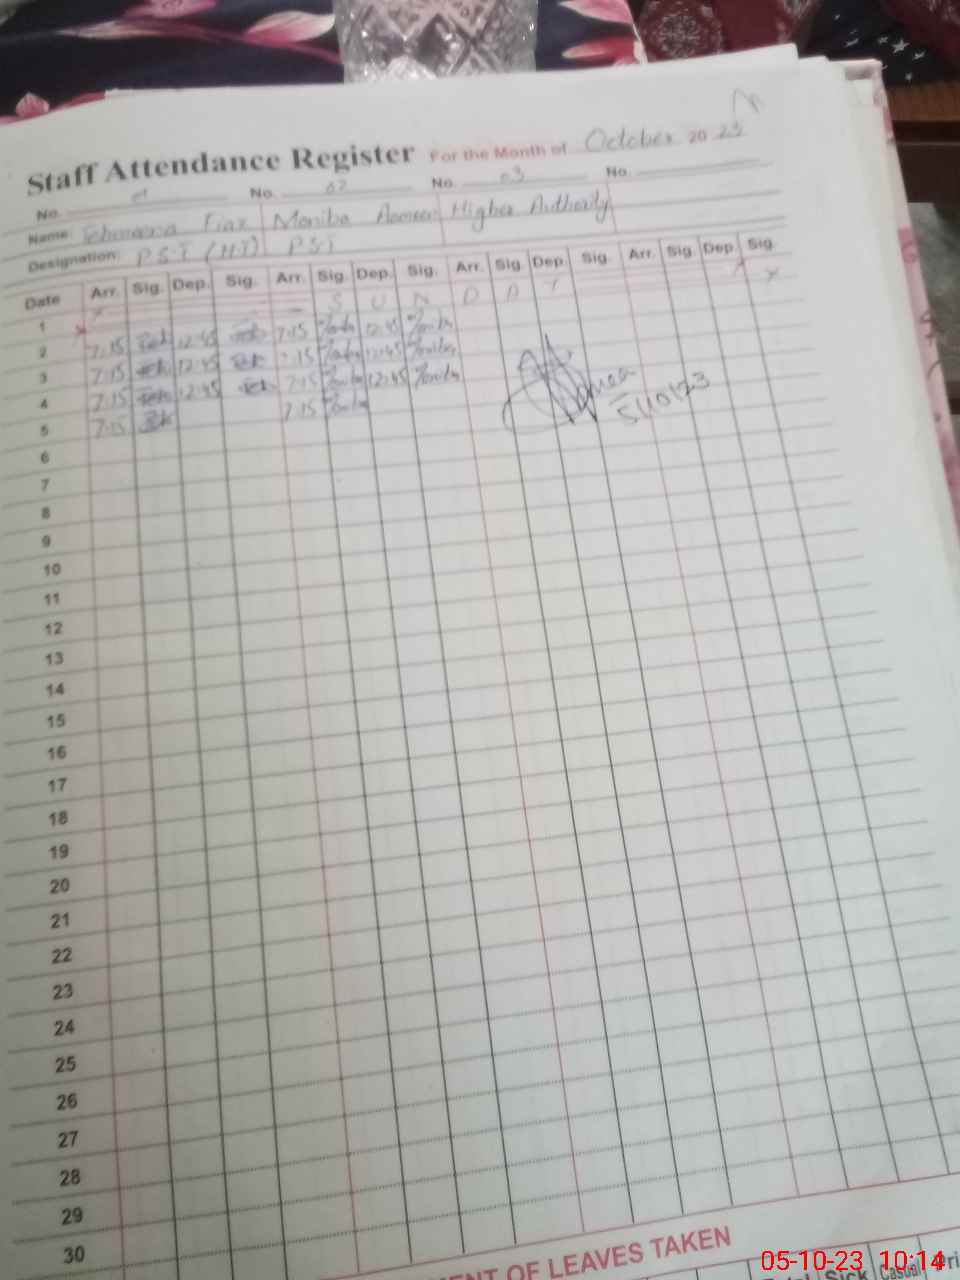 Staff Attendance Register For the Month of October 2023
No. 01 No. 02 No. 03 No.
Name: Tehmeena Fiaz Moniba Ameen Higher Authority
Designation: P.S.T (H.T) P.S.T
Date Arr. Sig. Dep. Sig. Arr. Sig. Dep. Sig. Arr. Sig. Dep. Sig. Arr. Sig. Dep. Sig.
1 S U N D A Y
2 7:15 12:45 7:15 12:45
3 7:15 12:45 7:15 12:45
4 7:15 12:45 7:15 12:45
5 7:15 7:15 5/10/23
6
7
8
9
10
11
12
13
14
15
16
17
18
19
20
21
22
23
24
25
26
27
28
29
30
MENT OF LEAVES TAKEN
Sick Casual Pri
05-10-23 10:14